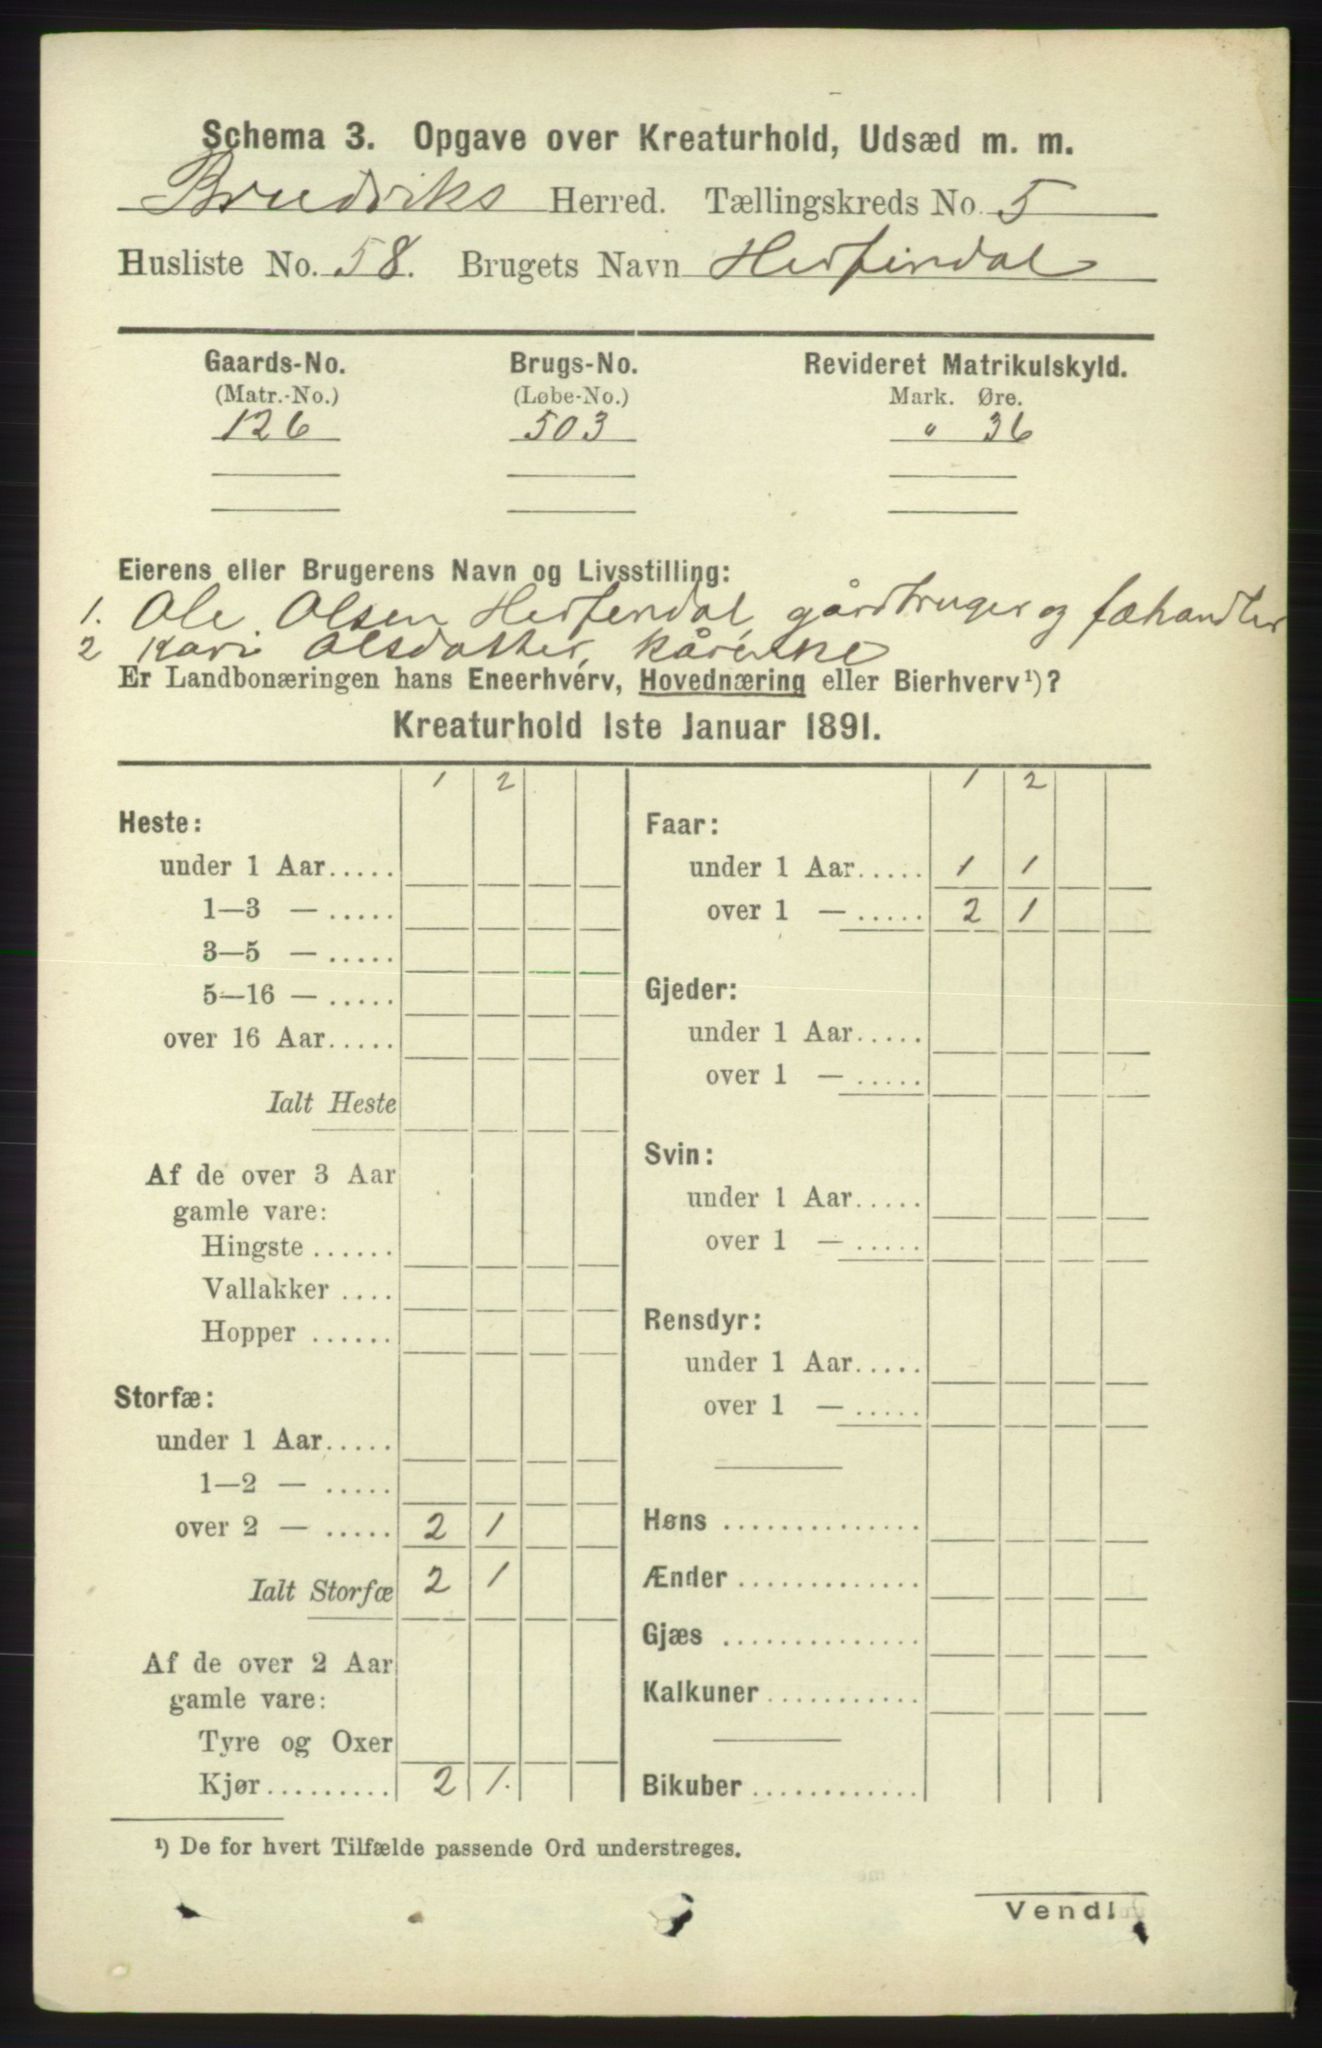 Schema 3. Opgave over Kreaturhold, Udsæd m. m.
Bruviks Herred. Tællingskreds No. 5
Husliste No. 58. Brugets Navn Herfindal
Gaards-No. Brugs-No. Revideret Matrikulskyld.
(Matr.-No.) (Løbe-No.) Mark. Øre.
126 503 " 36
Eierens eller Brugerens Navn og Livsstilling:
1. Ole Olsen Herfindal, gårdbruger og fæhandler
2 Kari Olsdatter, kårenke
Er Landbonæringen hans Eneerhverv, Hovednæring eller Bierhverv¹)?
Kreaturhold 1ste Januar 1891.
1 2
Heste:
under 1 Aar.....
1—3 — .....
3—5 — .....
5—16 — .....
over 16 Aar.....
Ialt Heste
Af de over 3 Aar
gamle vare:
Hingste ......
Vallakker ....
Hopper ......
Storfæ:
under 1 Aar.....
1—2 — .....
over 2 — ..... 2 1
Ialt Storfæ 2 1
Af de over 2 Aar
gamle vare:
Tyre og Oxer
Kjør......... 2 1.
1 2
Faar:
under 1 Aar..... 1 1
over 1 — ..... 2 1
Gjeder:
under 1 Aar.....
over 1 — .....
Svin:
under 1 Aar.....
over 1 — .....
Rensdyr:
under 1 Aar.....
over 1 — .....
Høns ..............
Ænder .............
Gjæs ..............
Kalkuner...........
Bikuber ............
¹) De for hvert Tilfælde passende Ord understreges.
Vend!